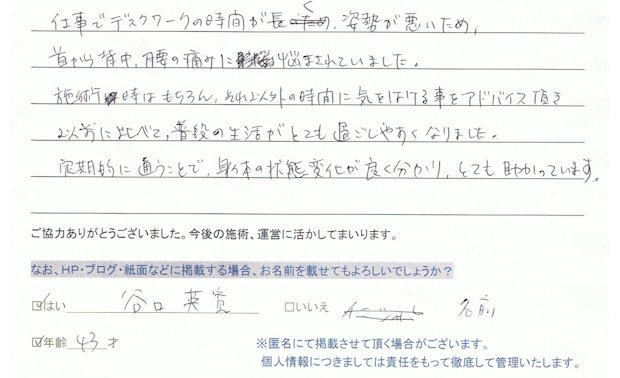 仕事でデスクワークの時間が長く、姿勢が悪いため、
首から背中、腰の痛みに悩まされていました。
施術時はもちろん、それ以外の時間に気をつける事をアドバイス頂き
以前に比べて、普段の生活がとても過ごしやすくなりました。
定期的に通うことで、身体の状態変化が良く分かり、とても助かっています。
ご協力ありがとうございました。今後の施術、運営に活かしてまいります。
なお、HP・ブログ・紙面などに掲載する場合、お名前を載せてもよろしいでしょうか？
☑はい 谷口英寛 □いいえ 名前
☑年齢 43才 ※匿名にて掲載させて頂く場合がございます。
個人情報につきましては責任をもって徹底して管理いたします。